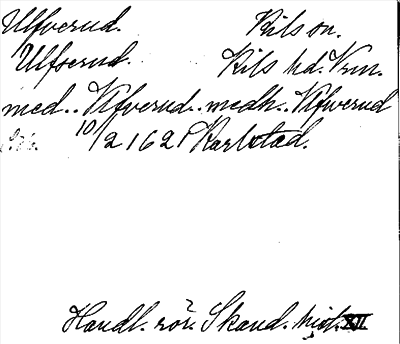 Ulfverud. Kils sn.
Ulfserud. Kils hd. Vrm.
med.. Ulfverud.. medh.. Ulfwerud
10/2 1621 Karlstad.
Handl. rör. Skand. hist. XII